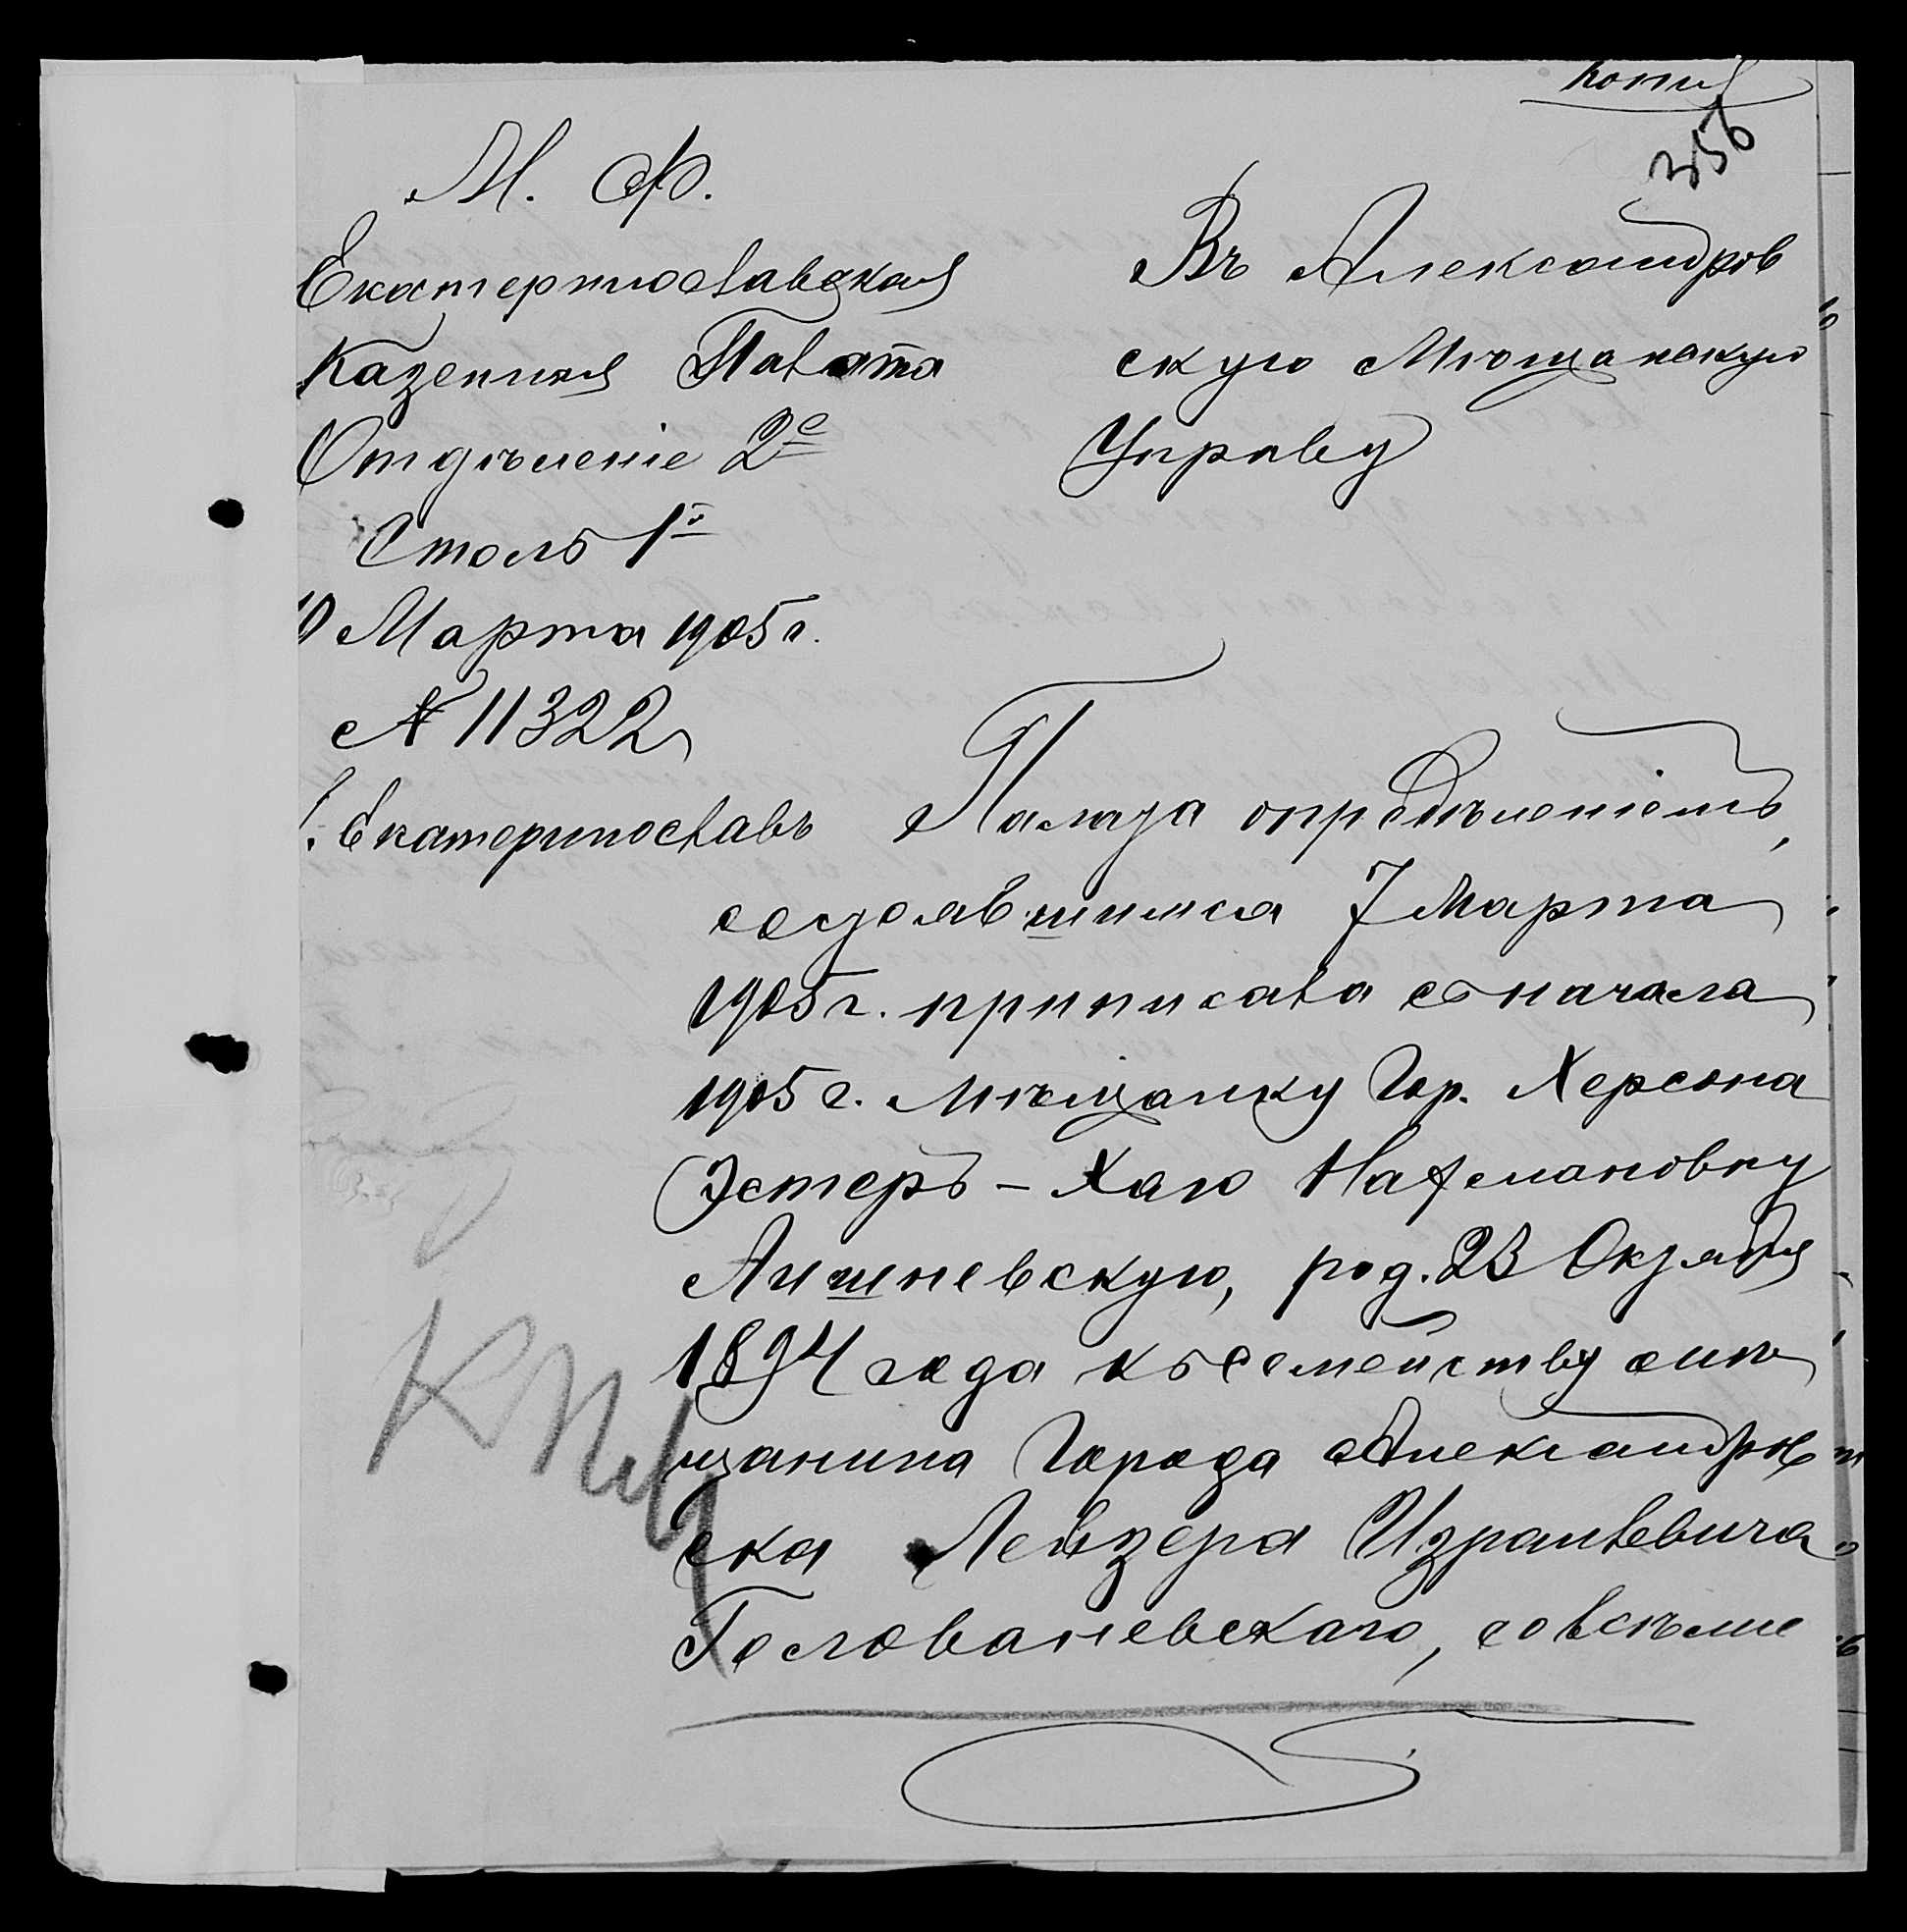 Копія
356
М. Ф.
Екатеринославская
Казенная Палата
Отдѣленіе 2е
Столъ 1й
10 Марта 1905 г.
№ 11322
г. Екатеринославъ
Въ Александров
скую Мѣщанскую
Управу
Палата опредѣленіемъ,
состоявшимся 7 Марта
1905 г. приписала съ начала
1905 г. мѣщанку гор. Херсона
Эстеръ-Хаю Нахмановну
Лишневскую, род. 23 Октября
1894 года къ семейству мѣ
щанина города Александров
ска Лейзера Израилевича
Голованевскаго, совсѣмъ